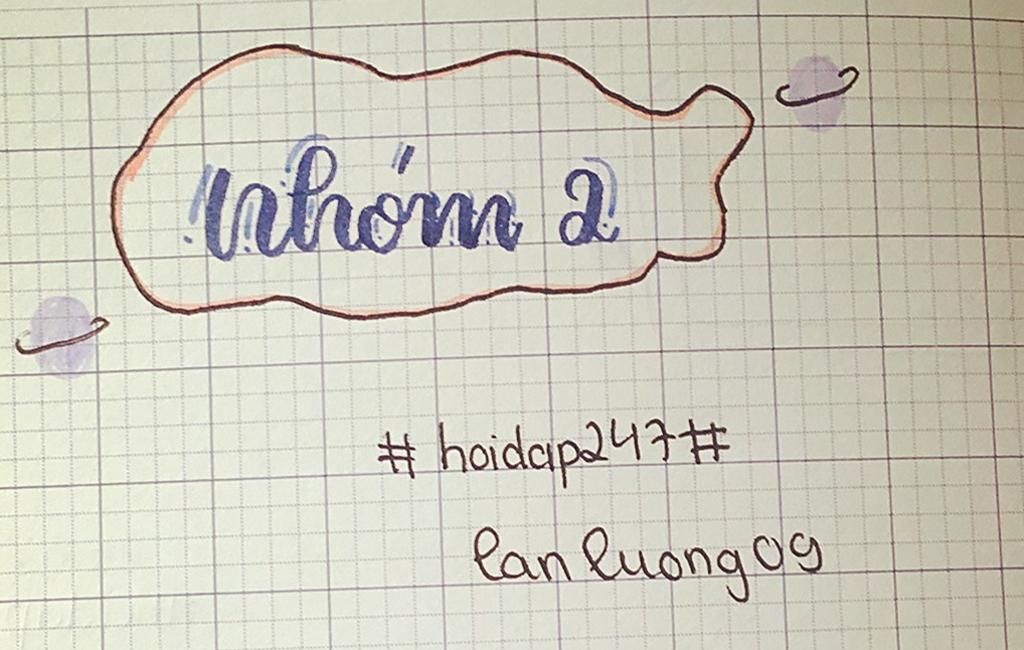 Nhóm 2
# hoidap247#
lanluong09